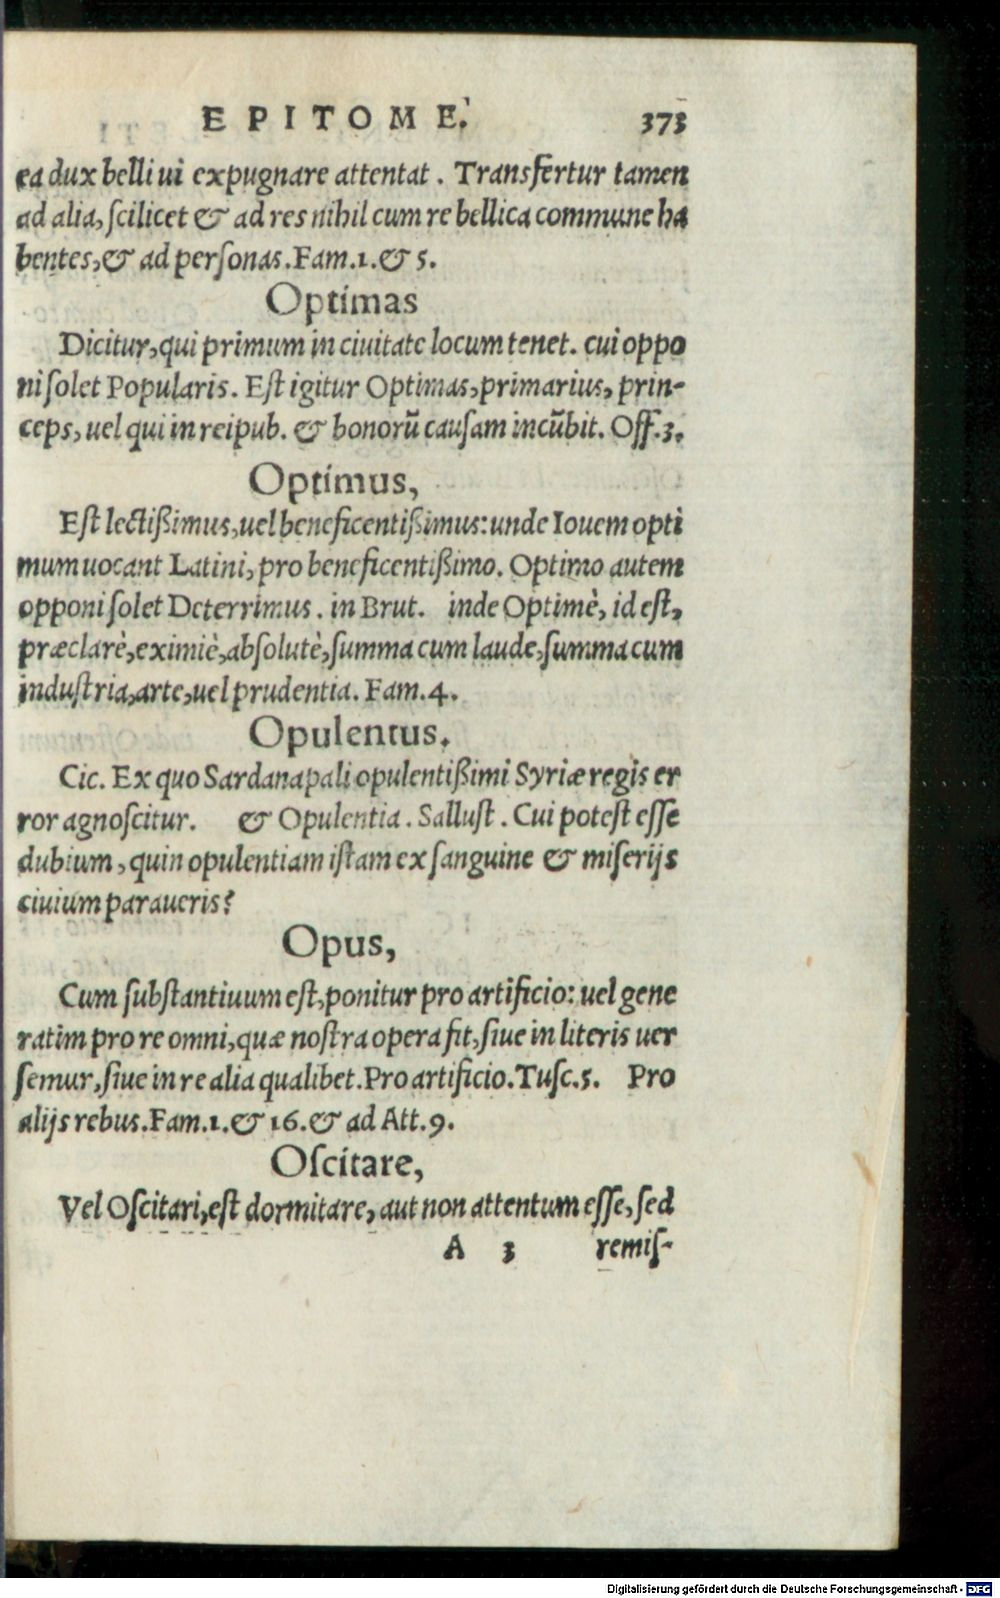 EPITOME. 373
ea dux belli ui expugnare attentat. Transfertur tamen
ad alia, ſcilicet & ad res nihil cum re bellica commune ha
bentes, & ad perſonas. Fam. 1. & 5.
Optimas
Dicitur, qui primum in ciuitate locum tenet. cui oppo
ni ſolet Popularis. Eſt igitur Optimas, primarius, prin-
ceps, uel qui in reipub. & bonorū cauſam incūbit. Off. 3.
Optimus,
Eſt lectißimus, uel beneficentißimus: unde Iouem opti
mum uocant Latini, pro beneficentißimo. Optimo autem
opponi ſolet Deterrimus. in Brut. inde Optimè, id eſt,
præclarè, eximiè, abſolutè, ſumma cum laude, ſumma cum
induſtria, arte, uel prudentia. Fam. 4.
Opulentus.
Cic. Ex quo Sardanapali opulentißimi Syriæ regis er
ror agnoſcitur. & Opulentia. Salluſt. Cui poteſt eſſe
dubium, quin opulentiam iſtam ex ſanguine & miſerijs
ciuium paraueris?
Opus,
Cum ſubſtantiuum eſt, ponitur pro artificio: uel gene
ratim pro re omni, quæ noſtra opera fit, ſiue in literis uer
ſemur, ſiue in re alia qualibet. Pro artificio. Tuſc. 5. Pro
alijs rebus. Fam. 1. & 16. & ad Att. 9.
Oſcitare,
Vel Oſcitari, eſt dormitare, aut non attentum eſſe, ſed
A 3 remiſ-
Digitalisierung gefördert durch die Deutsche Forschungsgemeinschaft - DFG